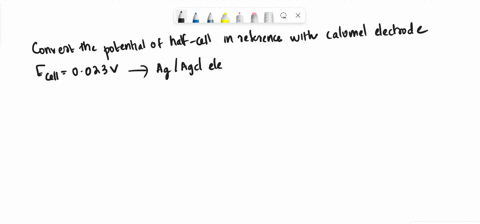 Convert the potential of half-cell in reference with calomel electrode
Ecell = 0.023V → Ag/Agcl ele